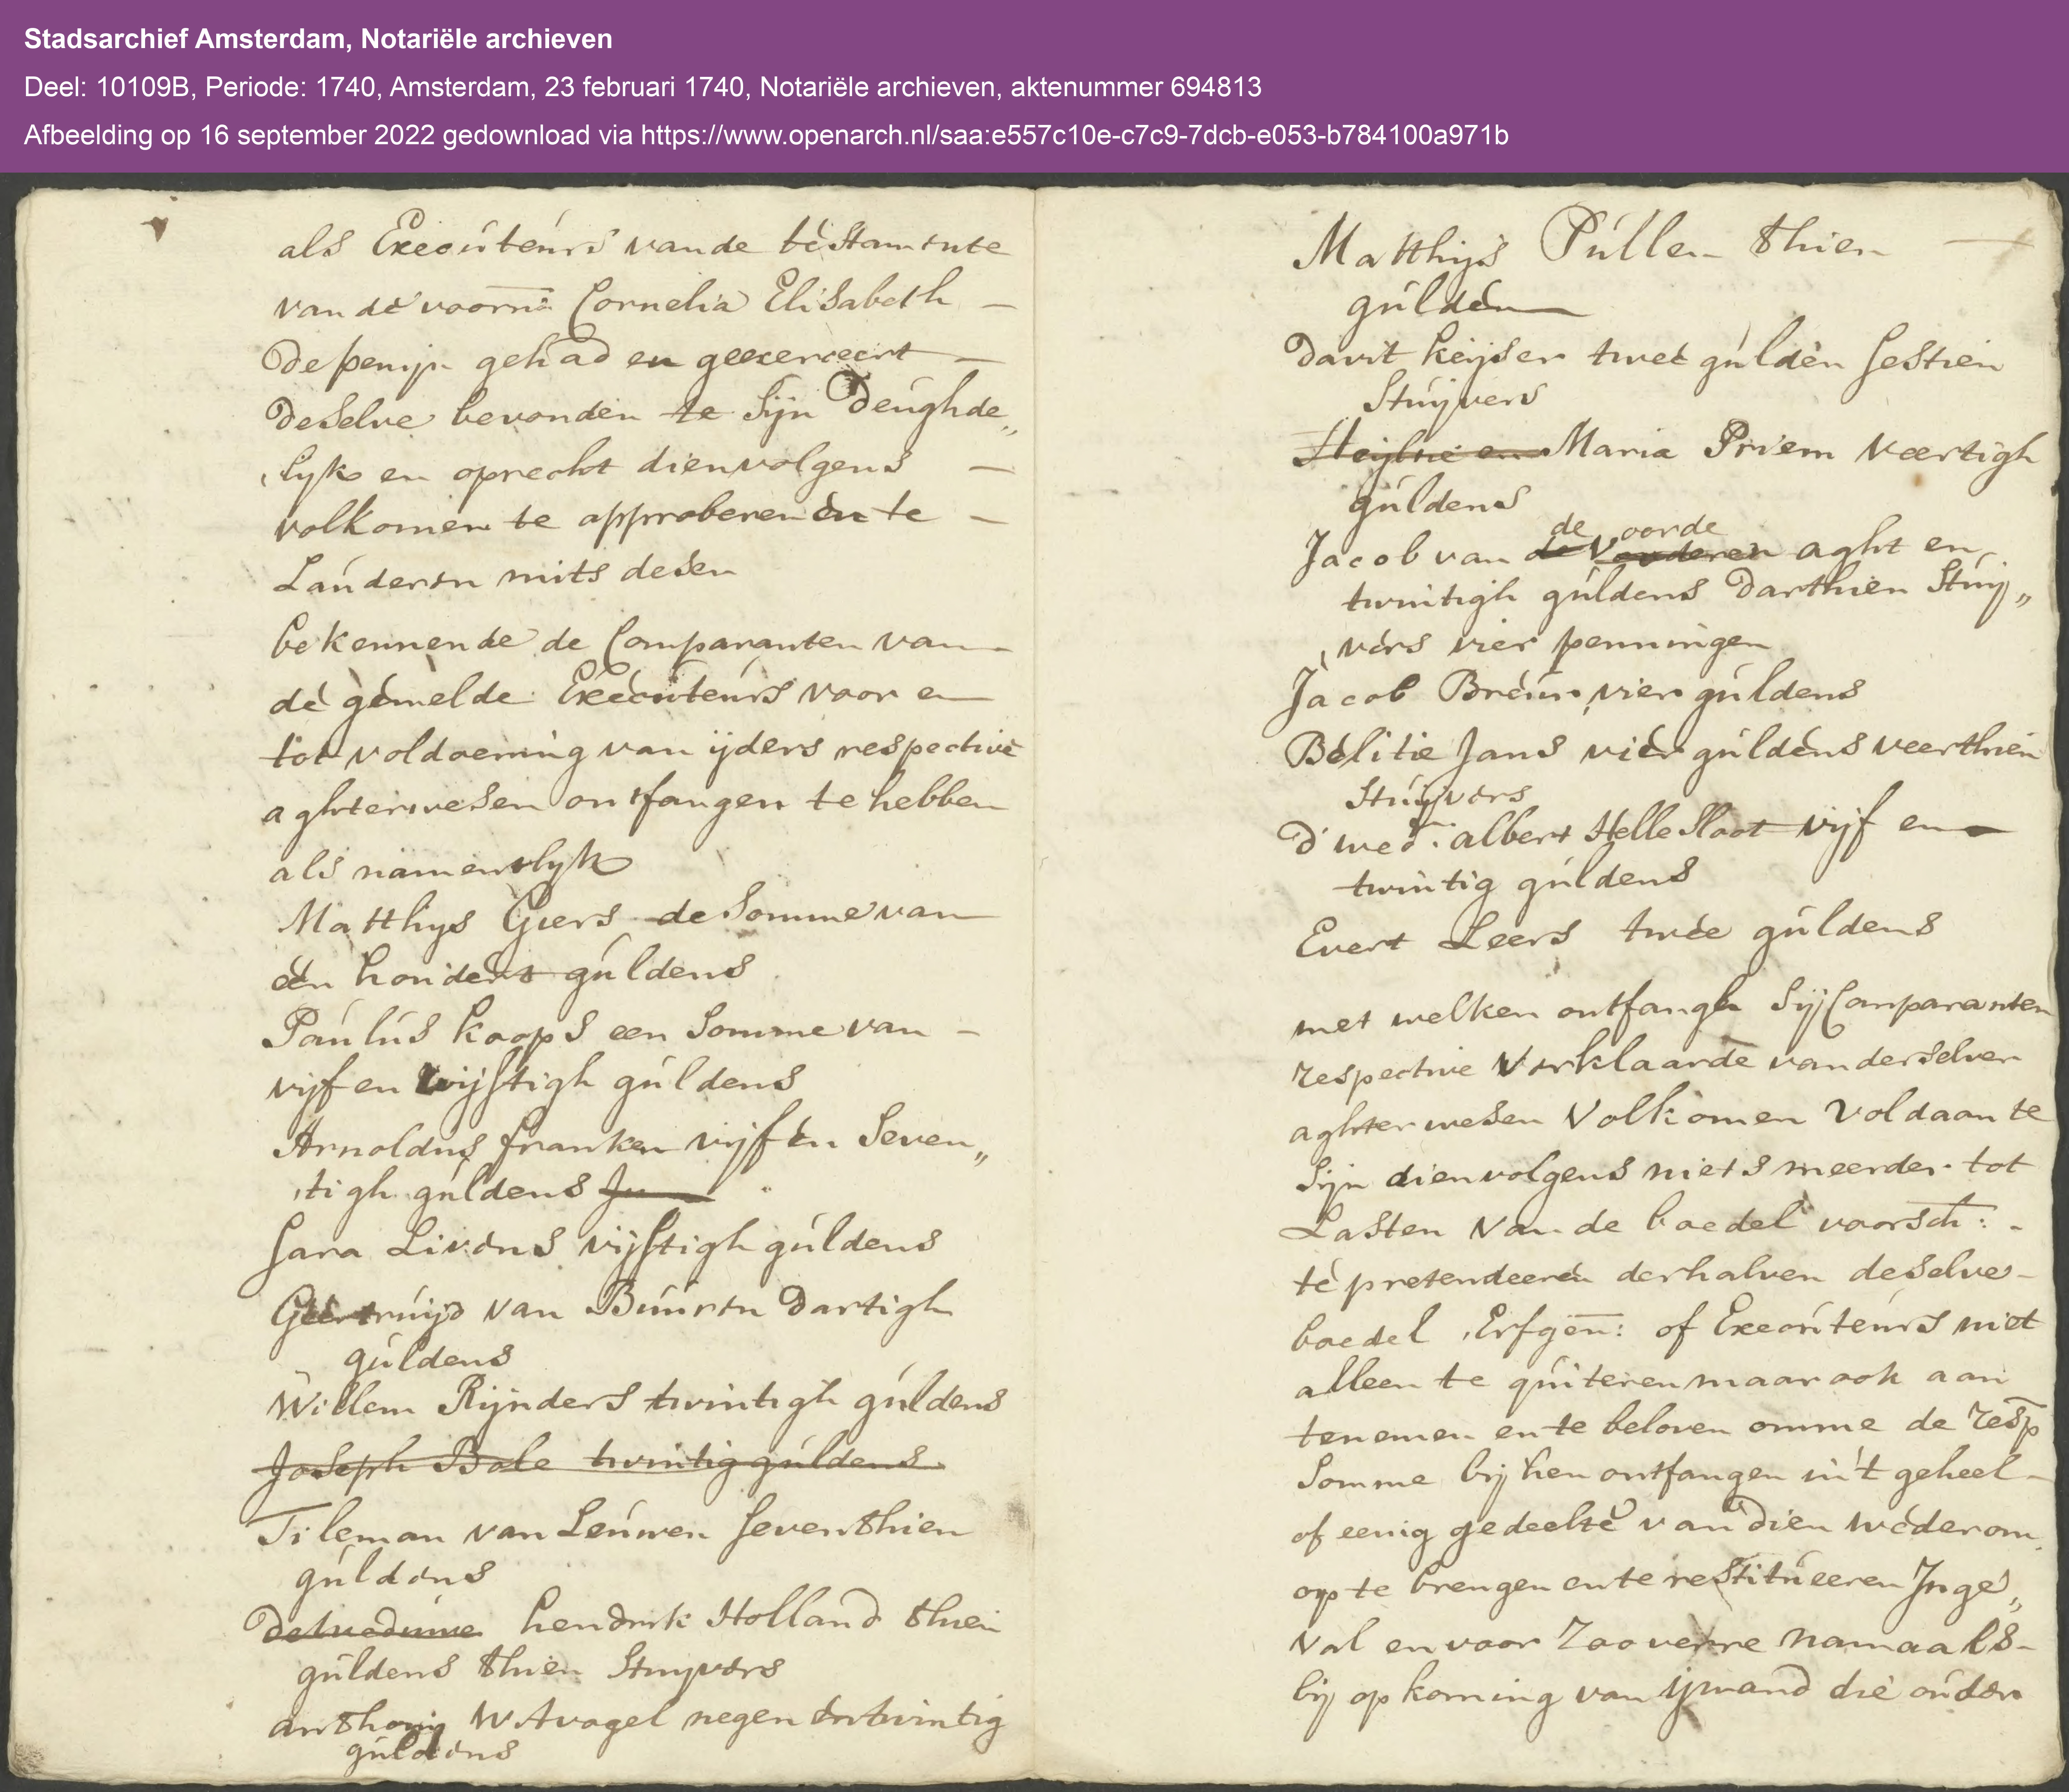 Stadsarchief Amsterdam, Notariële archieven
Deel: 10109B, Periode: 1740, Amsterdam, 23 februari 1740, Notariële archieven, aktenummer 694813
Afbeelding op 16 september 2022 gedownload via https://www.openarch.nl/saa:e557c10e-c7c9-7dcb-e053-b784100a971b
als Executeurs vande testamente
van de voorn: Cornelia Elisabeth
Depenijn gehad en geexerceert
deselve bevonden te sijn deughde„
lyk en oprecht dienvolgens
volkomen te approberen en te
Lauderen mits desen
bekennende de Comparanten van
de gemelde Executeurs voor en
tot voldoening van ijders respective
aghterwesen ontfangen te hebben
als namentlyk
Matthys Giers de somme van
een hondert guldens
Paulus Koops een somme van
vijf en vijftigh guldens
Arnoldus franken vijf en seven„
tigh guldens Ju
Sara Livens vijftigh guldens
Geertruijd van Buuren dartigh
guldens
Willem Rijnders twintigh guldens
Joseph Bale twintig guldens
Tileman van Leuwen seventhien
guldens
De weduwe hendrik Holland thien
guldens thien stuyvers
anthonij WAvogel negen en twintig
guldens
Matthijs Pullen thien
gulden
Davit Keijser twee gulden sestien
Stuijvers
en Maria Priem veertigh
guldens
de oorde
Jacob van de Vonderen aght en
twintigh guldens darthien Stuij„
vers vier penningen
Jacob Breur vier guldens
Belitie Jans vier guldens veerthien
Stuijvers
d' wed: albert Hellesloot vijf en
twintig guldens
Evert Leers twee guldens
met welken ontfangh sij Comparanten
respective verklaarde van derselver
aghterwesen volkomen voldaan te
sijn dienvolgens niets meerder tot
Lasten van de boedel voorsch:
te pretendeeren derhalven deselve
boedel Erfgen: of Executeurs niet
alleen te quiteren maar ook aan
tenemen en te beloven omme de resp
somme bij hen ontfangen in't geheel
of eenig gedeelte van dien wederom
op te brengen ente restitueeren Inge„
val en voor zoo verre namaals
bij op koming van ijmand die ouder